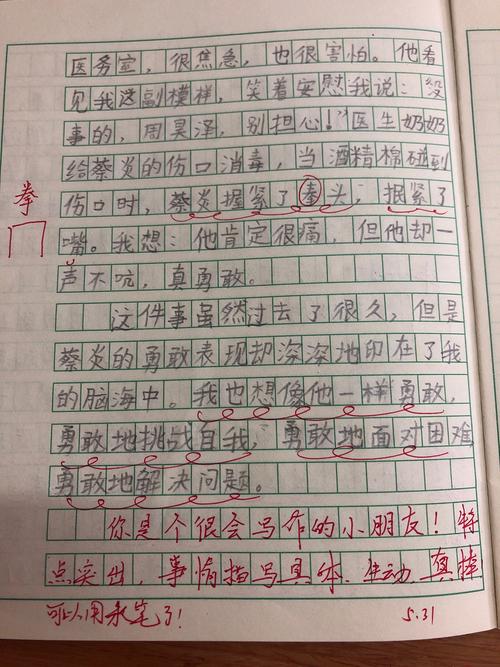 医务室，很焦急，也很害怕。他看
见我这副模样，笑着安慰我说：没
事的，周昊泽，别担心！”医生奶奶
给蔡炎的伤口消毒，当酒精棉碰到
拳
伤口时，蔡炎握紧了拳头，抿紧了
嘴。我想：他肯定很痛，但他却一
声不吭，真勇敢。
这件事虽然过去了很久，但是
蔡炎的勇敢表现却深深地印在了我
的脑海中。我也想像他一样勇敢，
勇敢地挑战自我，勇敢地面对困难
勇敢地解决问题。
你是个很会写作的小朋友！特
点突出，事情描写具体、生动，真棒
可以用水笔了！
5.31